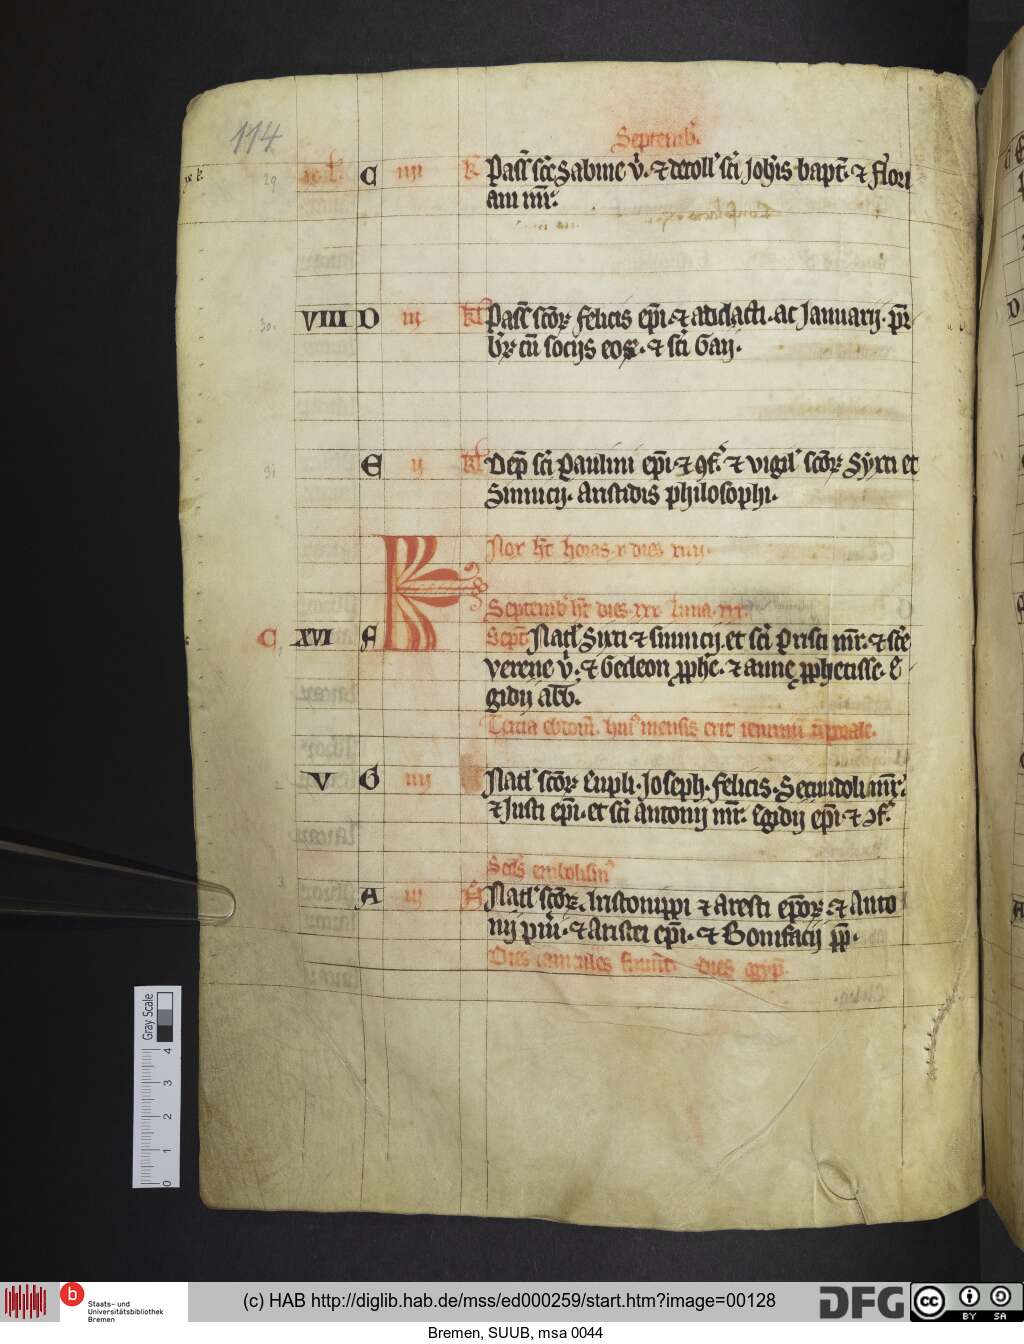 114
Septemb.
29 C IIII K Pass sce Sabine v. et decoll sci Johis bapt. et Flori
ani mr.
30. VIII D III kl Pass scor felicis epi. et audacti. ac Januarij. pr
br cu socijs eor. et sci Gaij.
31 E II kl Dep sci Paulini epi. et cf. et vigil scor Syxti et
Sinnicij. Aristidis philosophi.
Nox ht horas. x dies xiiij.
KL Septemb ht dies. xxx. luna. xxx.
C. XVI F Sept Natl Sixti et sinnicij. et sci Prisci mr. et sce
verene v. et Gedeon pphe. et anne pphetisse. E
gidij abb.
Tercia ebdom. hui mensis erit ieiuniu
2 V G IIII Natl scor Eupli. Joseph. felicis. Secundoli mr.
et Justi epi. et sci Antonij mr. Egidij epi. et cf.
Sedes embolism
3 A III N Natl scor. et Aresti epor. et Anto
nij pm. et Aristei epi. et Bonifacij pp.
Dies caniculares finiunt. dies egyp.
Gray Scale
4
3
2
1
0
b Staats- und
Universitätsbibliothek
Bremen
(c) HAB http://diglib.hab.de/mss/ed000259/start.htm?image=00128
DFG
cc BY SA
Bremen, SUUB, msa 0044